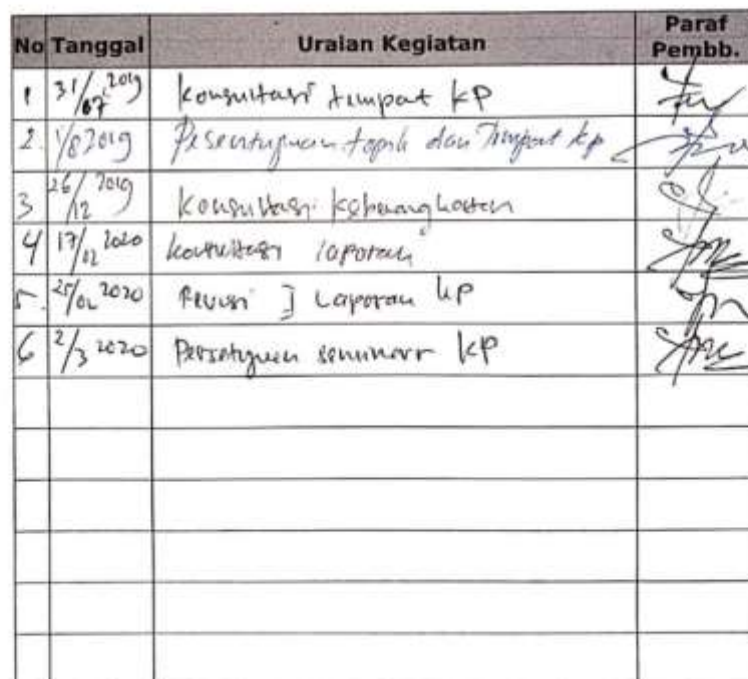 No Tanggal Uraian Kegiatan Paraf Pembb.
1 31/07 2019 Konsultasi tempat KP
2. 1/8 2019 Persentujuan topik dan Tempat kp
3 26/12 2019 Konsultasi keberangkatan
4 17/02 2020 konsultasi laporan
5. 25/02 2020 Revisi I Laporan KP
6 2/3 2020 Persetujuan seminar KP